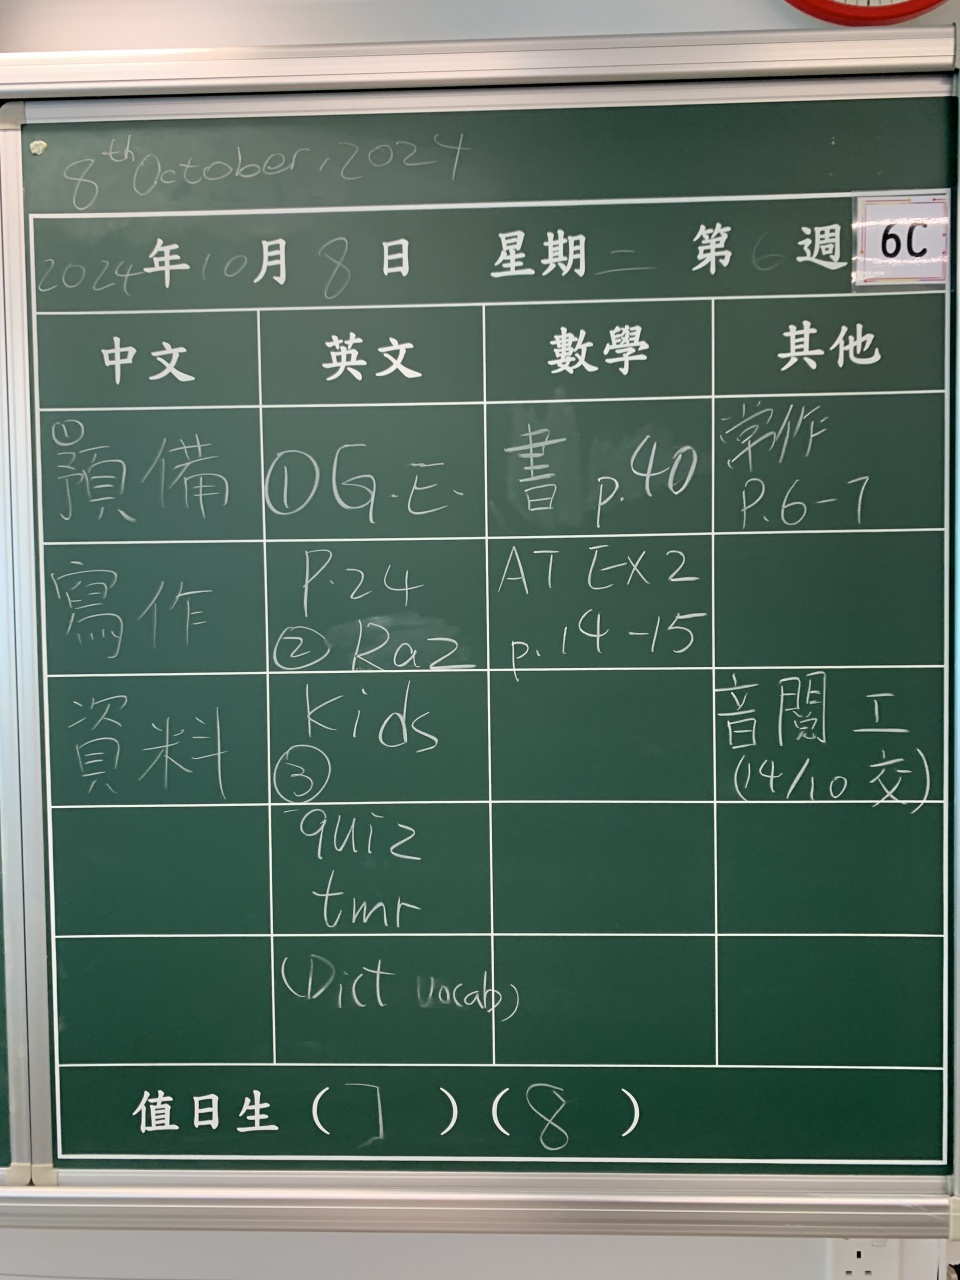 8th October, 2024
2024年10月8日 星期二 第6週 6C
中文 英文 數學 其他
① 預備 ① G.E. 書 p.40 常作 P.6-7
寫作 P.24 AT Ex 2
② Raz p.14-15
資料 Kids 音閱工
③ (14/10 交)
quiz
tmr
(Dict vocab)
值日生 (7) (8)